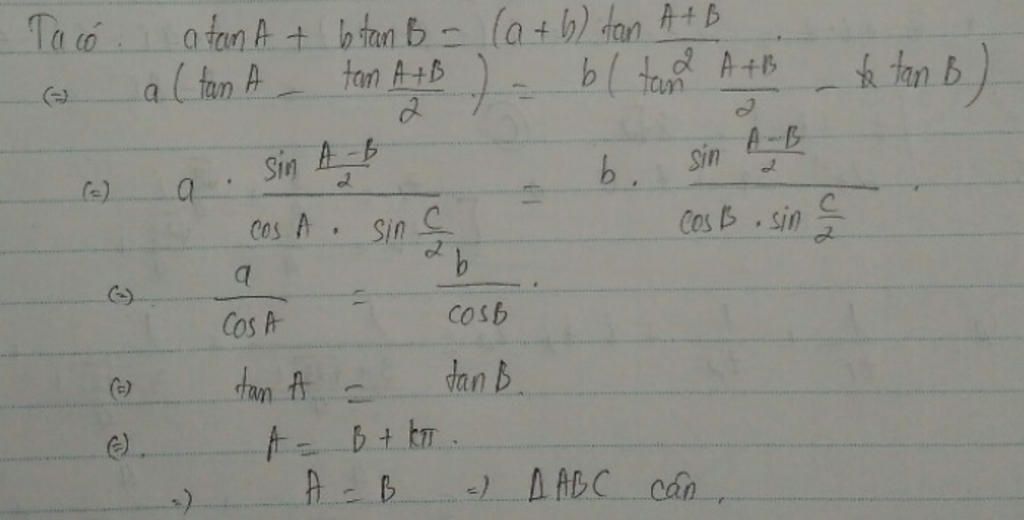 Ta có. a tan A + b tan B = (a + b) tan (A+B)/2.
(=) a ( tan A - tan (A+B)/2 ) = b ( tan (A+B)/2 - tan B )
(=) a . (sin (A-B)/2)/(cos A . sin C/2) = b. (sin (A-B)/2)/(cos B . sin C/2) .
(=) a/(cos A) = b/(cos B) .
(=) tan A = tan B.
(=). A = B + kπ .
=) A = B =) ΔABC cân.